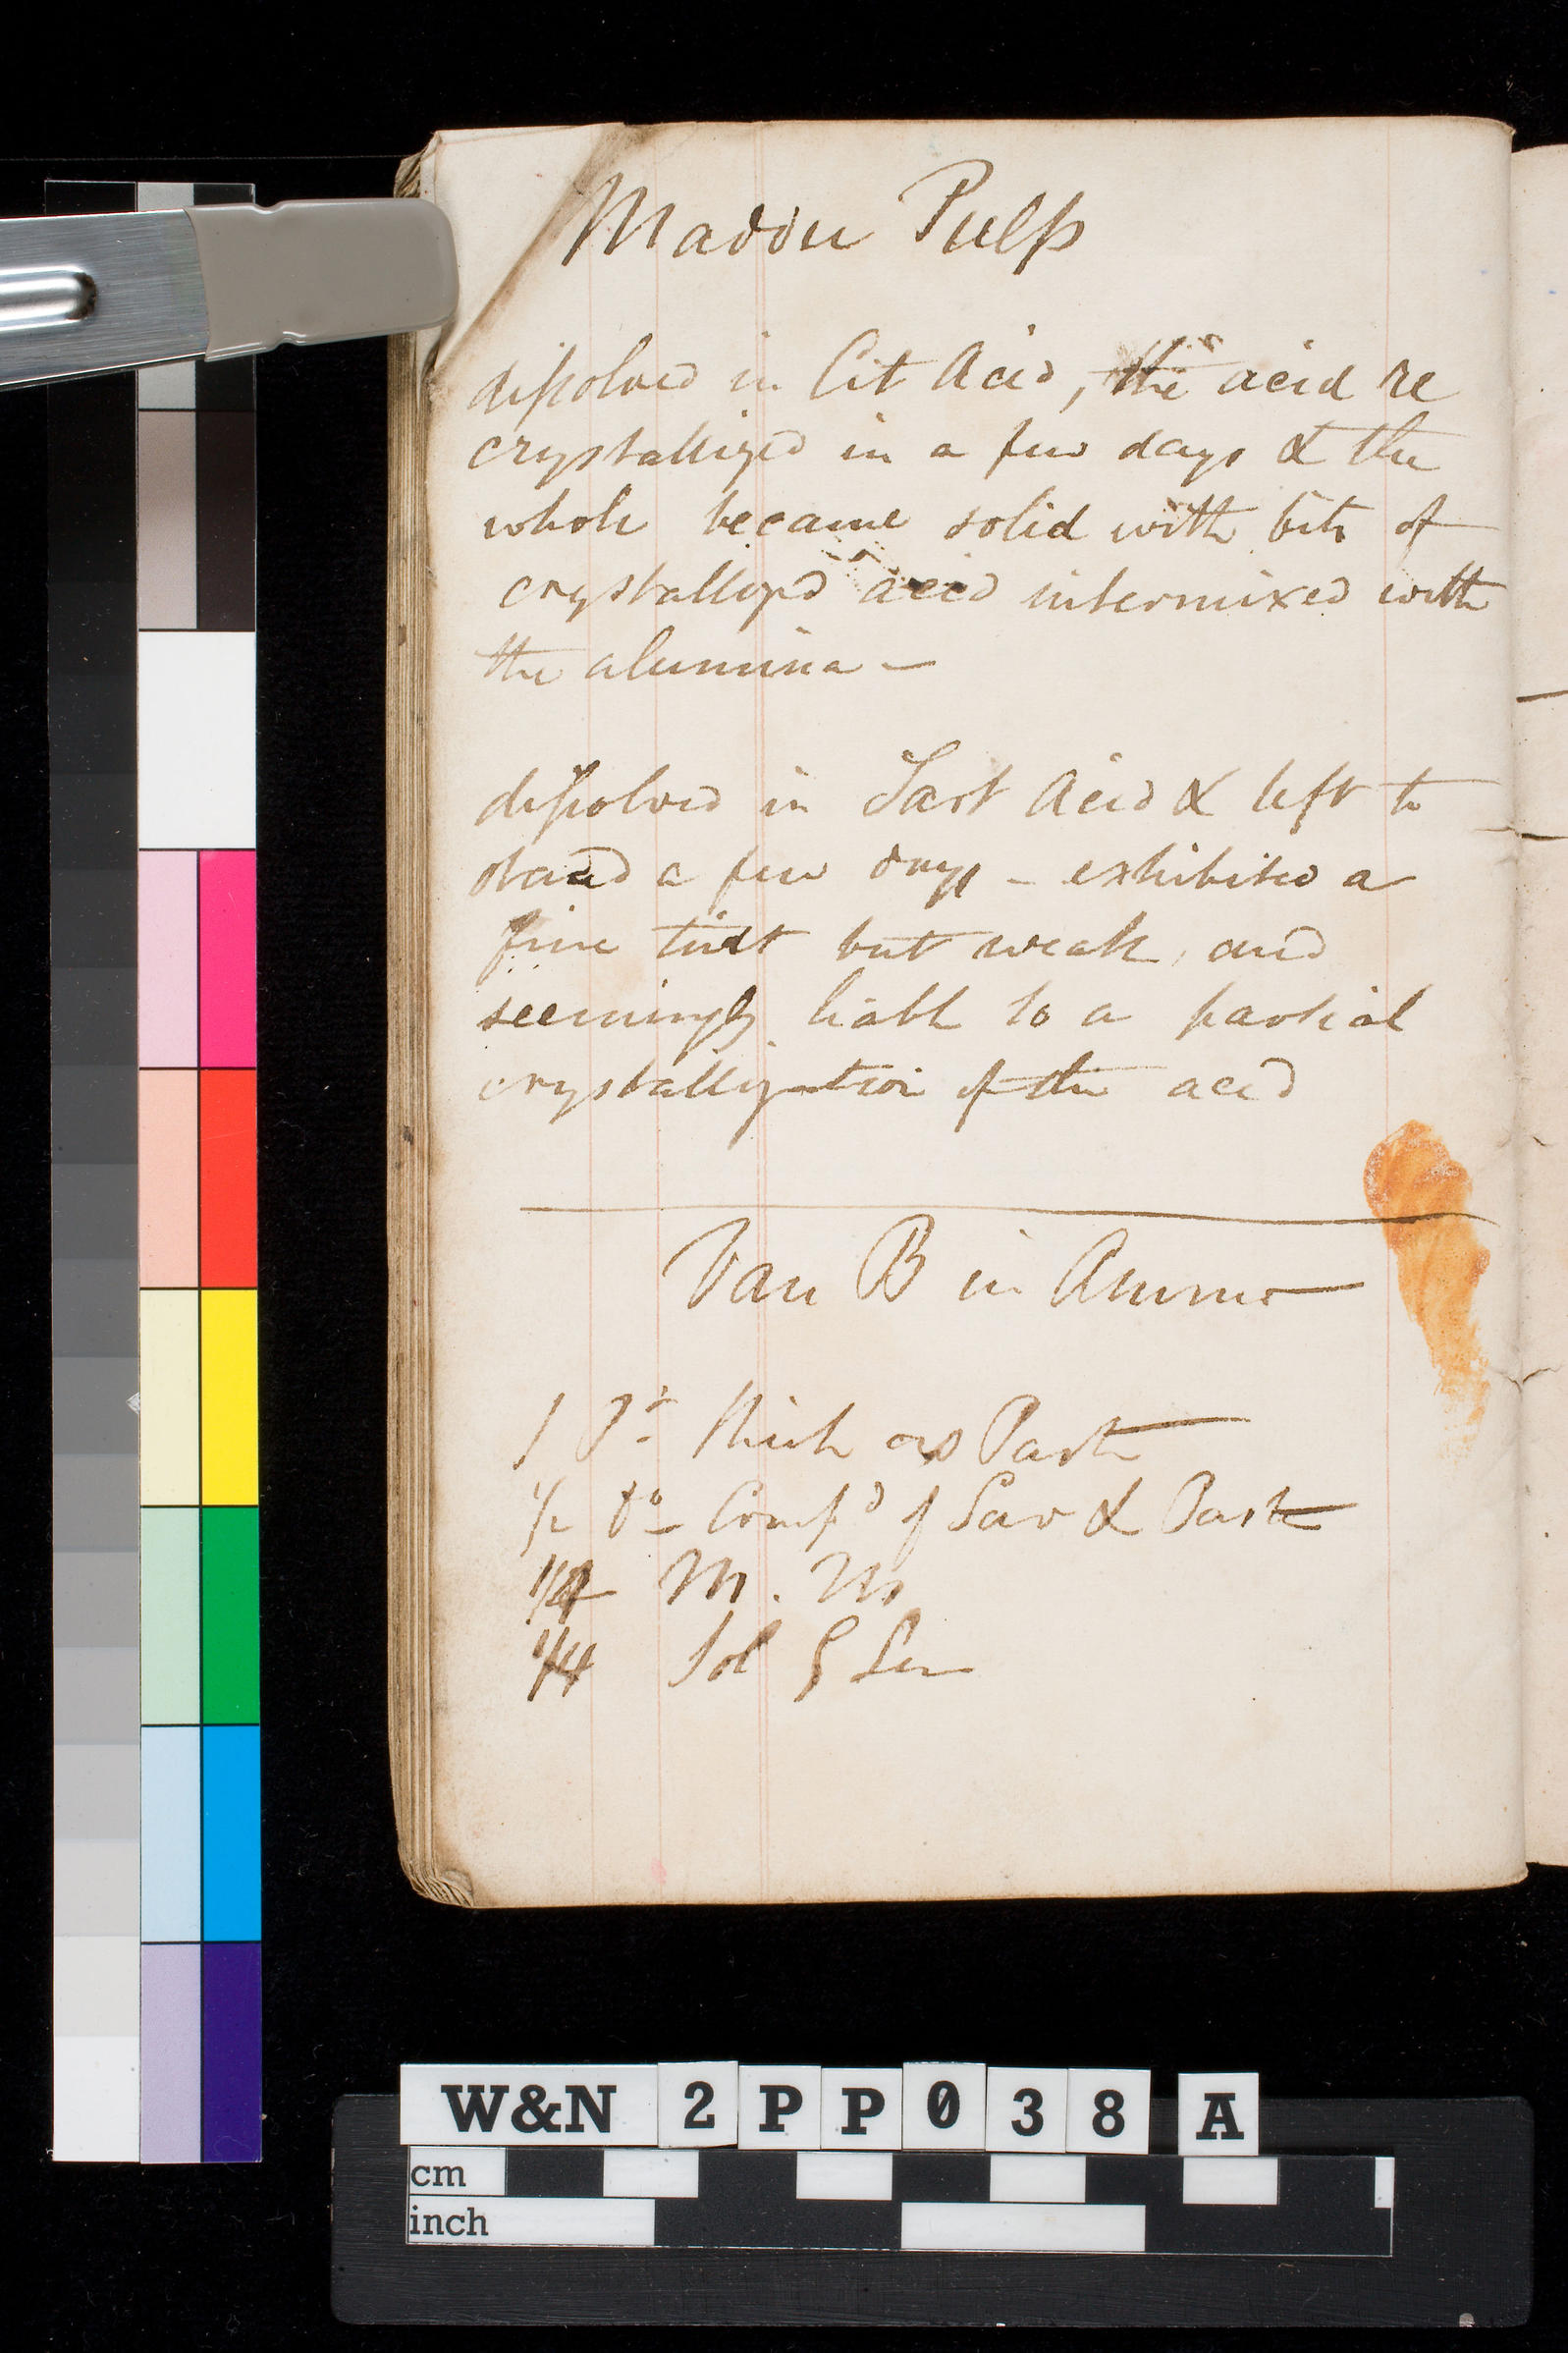 Madder Pulp
dissolved in Cit Acid, the acid re
crystallized in a few days & the
whole became solid with bits of
crystallized acid intermixed with
the alumina –
dissolved in Tart Acid & left to
stand a few days – exhibited a
fine tint but weak, and
seemingly liable to a partial
crystallization of the acid
Van B in Ammo
1 Pt thick as Paste
1/2 do Comp'd of &
1/4 M. M
1/4 Sol G Sen
W&N 2PP038 A
cm
inch